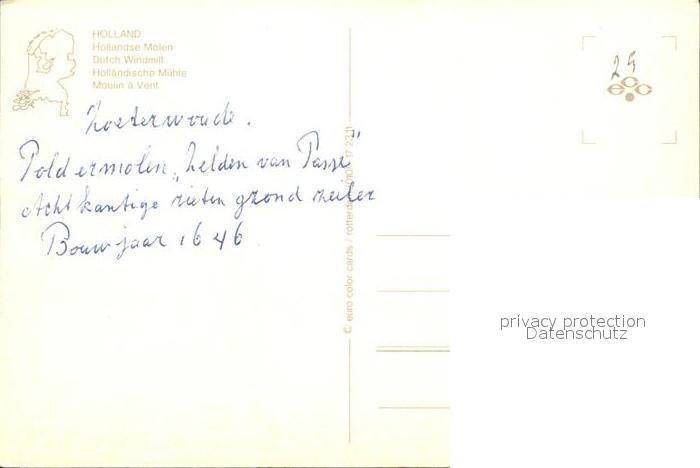 HOLLAND
Hollandse Molen
Dutch Windmill
Holländische Mühle
Moulin à Vent
29
ecc
Zoeterwoude.
Poldermolen „Zelden van Passe”
Achtkantige rieten grond zeiler
Bouwjaar 1646
© euro color cards / rotterdam
privacy protection
Datenschutz